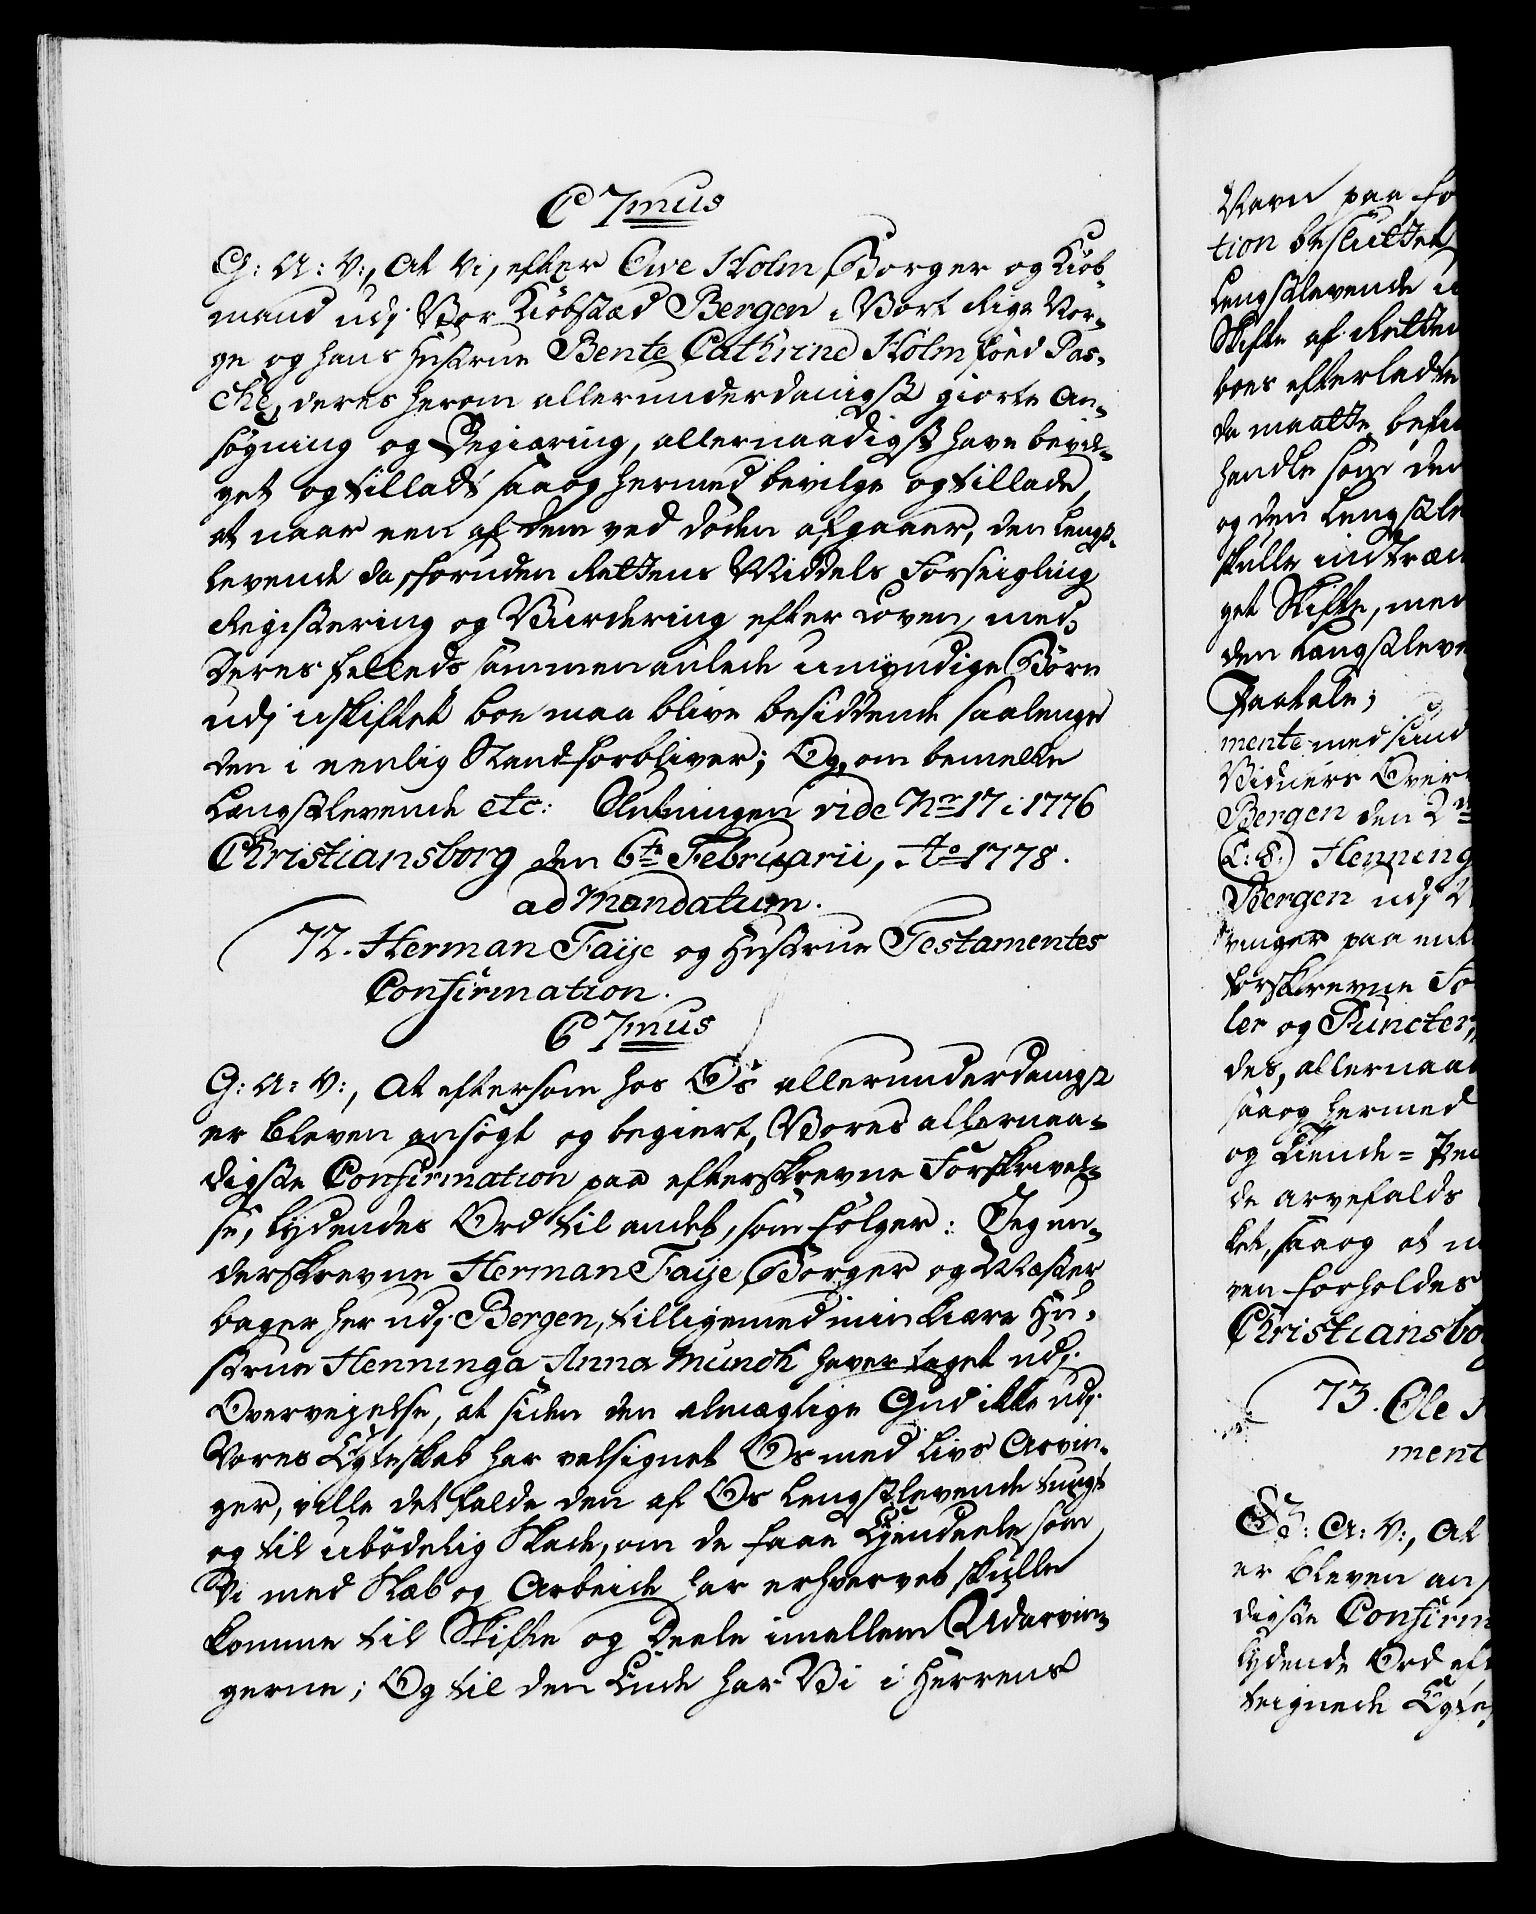 C 7mus
G: A: V:, At Vi, efter Ove Holm Borger og Kiöb-
mand udj Vor Kiöbstæd Bergen i Vort Rige Nor-
ge og hans Hustrue Bente Cathrine Holm föed Pas-
che, deres herom allerunderdanigst giorte An-
sögning og Begiæring, allernaadigst have bevil-
get og tilladt saa og hermed bevilge og tillade,
at naar een af dem ved döden afgaaer, den Lengst-
levende da, foruden Rettens Middels Forseigling
Registering og Vurdering efter Loven, med
Deres felleds sammenavlede umyndige Börn
udj uskiftet boe maa blive besiddende saalenge
den i eenlig Stand forbliver; Og, om bemelte
Længstlevende etc: Slutningen vide No 17 i 1776
Christiansborg den 6te Februarii, Ao 1778.
ad Mandatum.
72. Herman Faÿe og Hustrue Testamentes
Confirmation.
C 7mus
G: A: V:, At eftersom hos Os allerunderdanigst
er bleven ansögt og begiert, Vores allernaa-
digste Confirmation paa efterskrevne Forskrivel-
se, lydendes Ord til andet, som fölger: Jeg un-
derskrevne Herman Faÿe Borger og Mæster
bager her udj Bergen, tilligemed min kiære Hu-
strue Henninga Anna Munch haver taget udj
Overvejelse, at siden den almægtige Gud ikke udj
Vores Egteskab har velsignet Os med Livs Arvin-
ger, ville det falde den af Os Lengstlevende tungt
og til ubödelig Skade, om de faae Eyendeele som
Vi med Slæb og Arbeide har erhvervet skulle
komme til Skifte og Deele imellem Udarvin-
gerne; Og til den Ende har Vi i Herrens
Navn paa
tion besluttet
Lengstlevende
Skifte af Retten
boes efterladte
da maatte
handle som den
og den Lengstle
skulle indtræ
get Skifte, men
den Længstleve
Paatale;
mente med
Vidners Over
Bergen den 2d
(L: S:) Henning
Bergen udj
vinger paa
forskrevne
ler og Puncter,
des, allernaa
saa og hermed
og kiende =
de arvefalds
ket, saa og at
ven forholdes
Christiansbo
73. Ole
ment
G: A: V:, At
er bleven an
digste Confirm
lydende Ord
teignede Egte